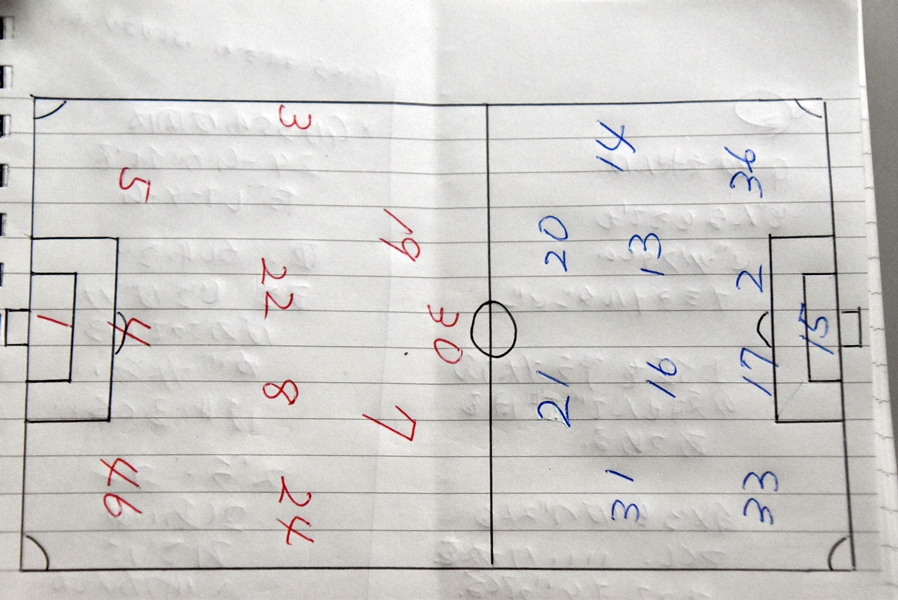 1
4
5
46
3
22
8
24
19
7
30
20
21
14
13
16
31
36
2
17
33
15